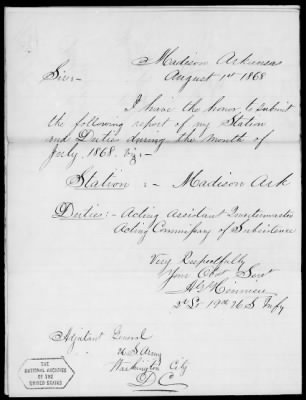 Madison Arkansas
August 1st 1868
Sir:-
I have the honor, to submit
the following report of my Station
and Duties during the month of
July. 1868. Viz:-
Station :- Madison Ark
Duties:- Acting Assistant Quartermaster
Acting Commissary of Subsistence
Very Respectfully
Your Obt Servt
2d Lt 19th U S Infty
Adjutant General
U S Army
Washington City
D C
THE
NATIONAL ARCHIVES
OF THE
UNITED STATES